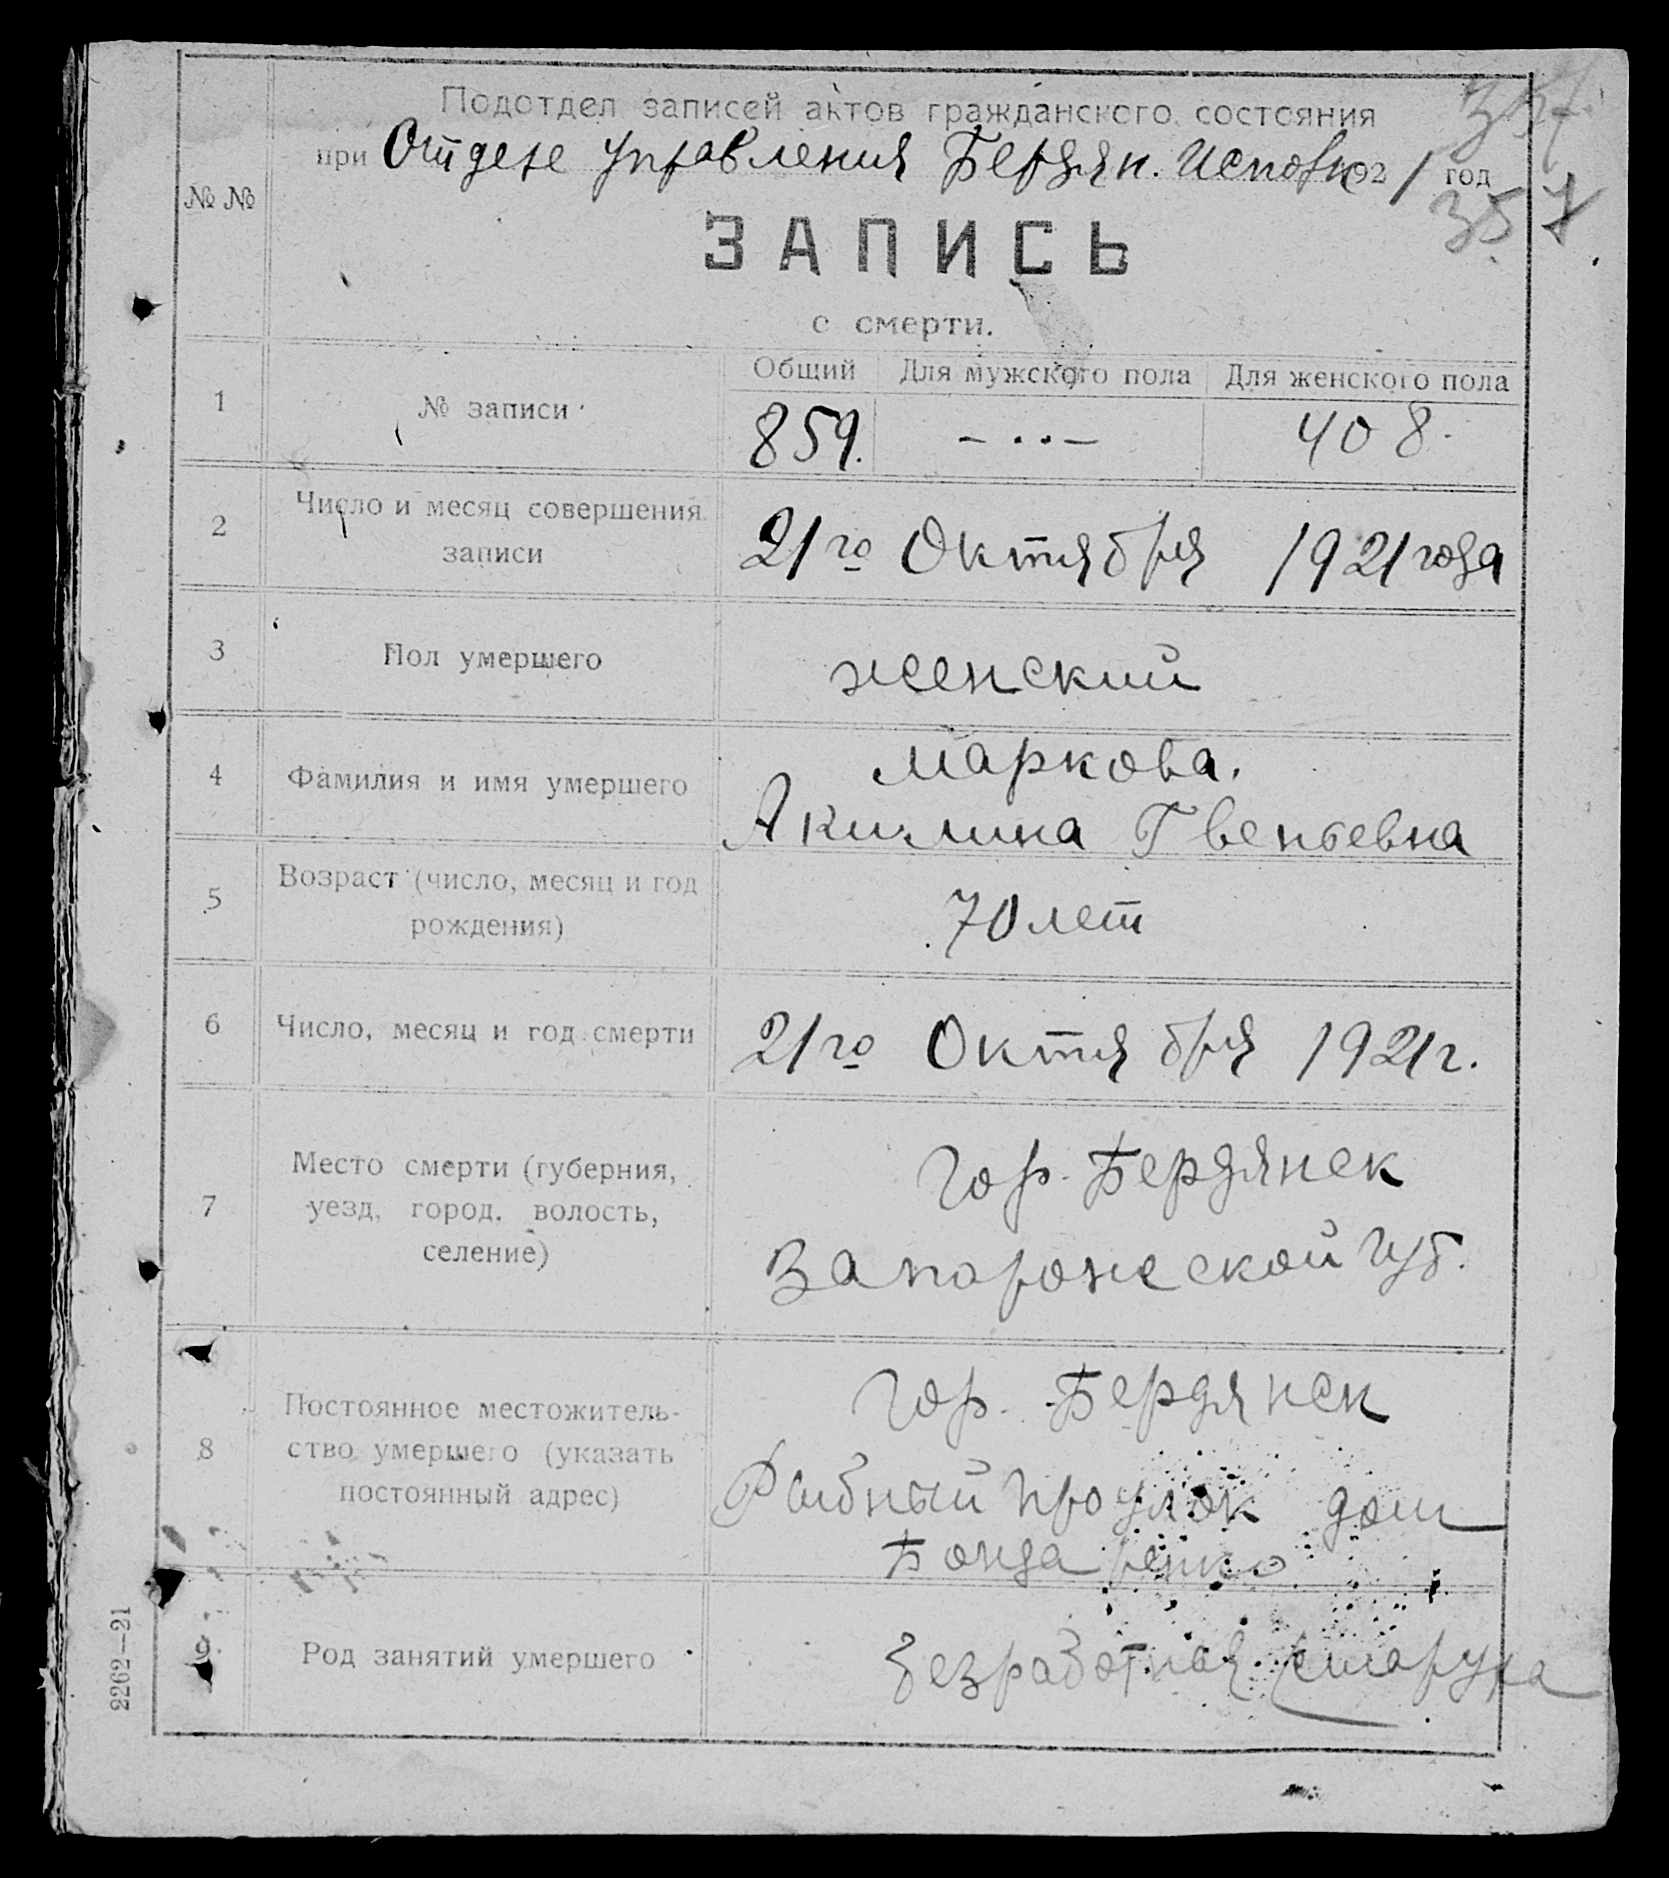 Подотдел записей актов гражданского состояния
при Отделе Управления Бердян. Исполк 192 1 год
357
357
№ №
ЗАПИСЬ
о смерти.
Общий Для мужского пола Для женского пола
1 № записи 859. – · · – 408.
2 Число и месяц совершения
записи
21го Октября 1921 года
3 Пол умершего женский
4 Фамилия и имя умершего
Маркова.
Акилина
5 Возраст (число, месяц и год
рождения)
70 лет
6 Число, месяц и год смерти 21го Октября 1921 г.
7 Место смерти (губерния,
уезд, город, волость,
селение)
гор. Бердянск
Запорожской губ.
8 Постоянное местожитель-
ство умершего (указать
постоянный адрес)
гор. Бердянск
Рыбный проулок дом
Бондаренко
9 Род занятий умершего безработная старуха
2262—21